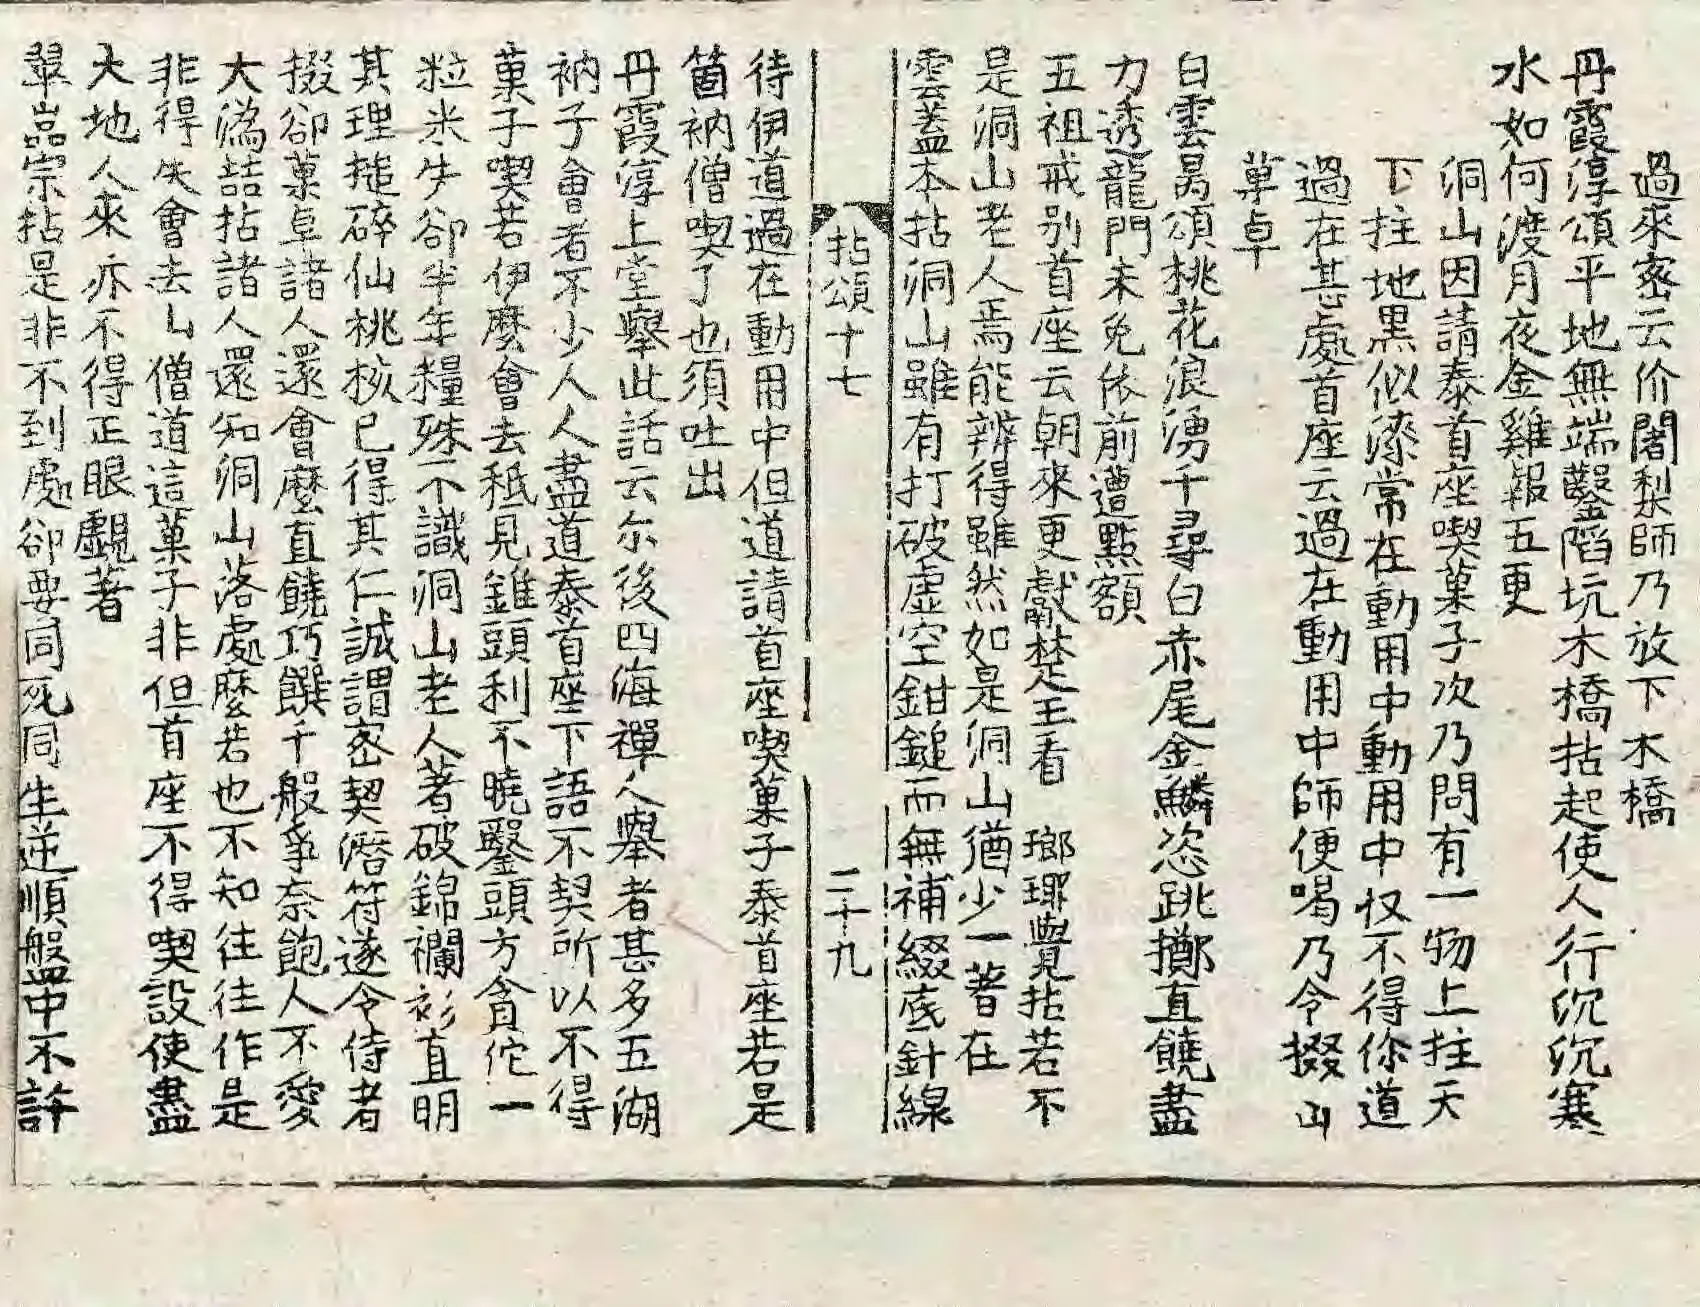 過來密云价闍梨師乃放下木橋
丹霞淳頌平地無端鑿陷坑木橋拈起使人行沉沉寒
水如何渡月夜金雞報五更
洞山因請泰首座喫菓子次乃問有一物上拄天
下拄地黑似漆常在動用中動用中收不得你道
過在甚處首座云過在動用中師便喝乃令掇
菓卓
白雲昺頌桃花浪湧千尋白赤尾金鱗恣跳擲直饒盡
力透龍門未免依前遭點額
五祖戒别首座云朝來更獻楚王看 瑯瑘覺拈若不
是洞山老人焉能辨得雖然如是洞山猶少一著在
雲蓋本拈洞山雖有打破虛空鉗鎚而無補綴底針線
拈頌十七 二十九
待伊道過在動用中但道請首座喫菓子泰首座若是
箇衲僧喫了也須吐出
丹霞淳上堂舉此話云尔後四海禪人舉者甚多五湖
衲子會者不少人人盡道泰首座下語不契所以不得
菓子喫若伊麼會去秪見錐頭利不曉鑿頭方貪佗一
粒米失卻半年糧殊不識洞山老人著破錦襴衫直明
其理搥碎仙桃核已得其仁誠謂密契潛符遂令侍者
掇卻菓卓諸人還會麼直饒巧饌千般爭奈飽人不愛
大溈喆拈諸人還知洞山落處麼若也不知往往作是
非得失會去山僧道這菓子非但首座不得喫設使盡
大地人來亦不得正眼覷著
翠嵓宗拈是非不到處卻要同死同生逆順盤中不許